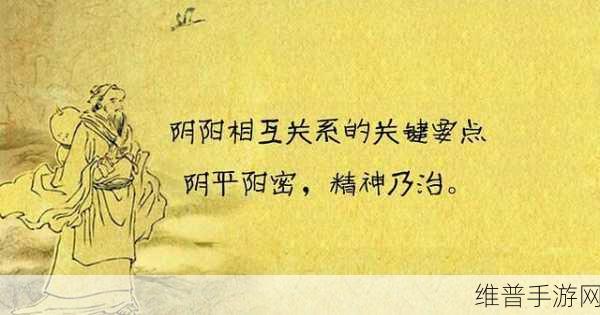 阴阳相互关系的关键要点
阴平阳密，精神乃治。
维普手游网